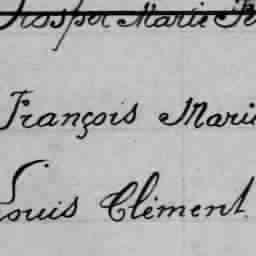 Prosper Marie
François Marie
Louis Clément